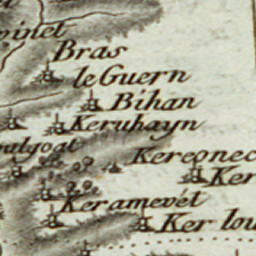 Bras
le Guern
Bihan
Keruhayn
Kereonec
Ker
Keramevét
Ker lou